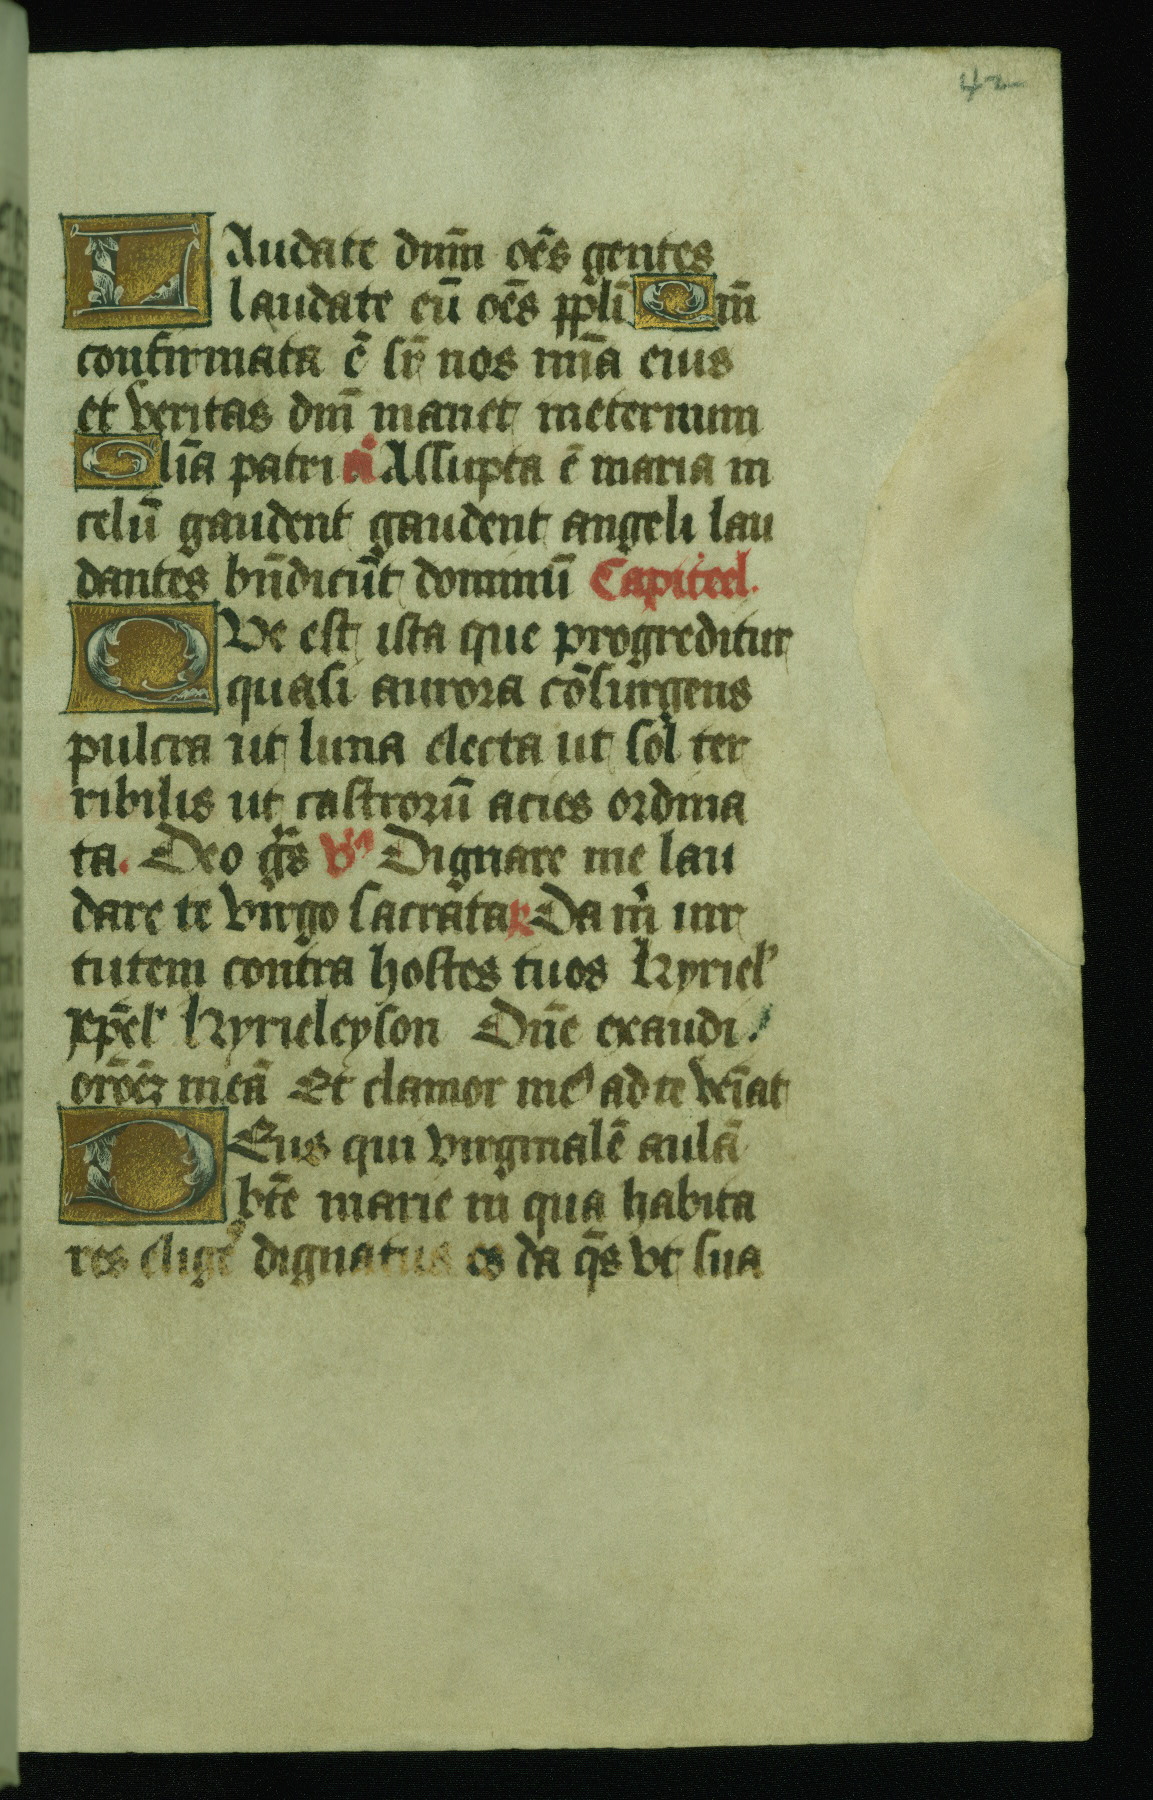 42
LAudate dnm̄ oēs gentes
laudate eū oēs pp̄li Qm̄
confirmata ē sr̄ nos mīa eius
et veritas dnī manet ineternum
Glīa patri a͛ Assūpta ē maria in
celū gaudent gaudent angeli lau
dantes bn̄dicūt dominū Capiteel.
QVe est ista que progreditur
quasi aurora cōsurgens
pulcra ut luna electa ut sol ter
ribilis ut castrorū acies ordina
ta. Deo gr̄s v͛s Dignare me lau
dare te virgo sacrata R Da m̄ uir
tutem contra hostes tuos Kyriel'
xp̄el' Kyrieleyson Dn̄e exaudi
orōēꝫ meā Et clamor me⁹ ad te vēiat
DEus qui virginalē aulā
bt̄e marie in qua habita
res elige͛ dignatus es da q̄s vt sua